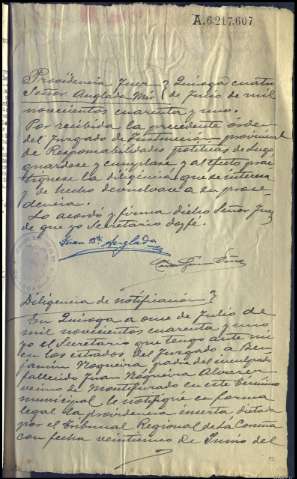 A.6.217.607
Providencia Juez } Quiroga cuatro
Señor Anglada Mir } de Julio de mil
novecientos cuarenta y uno.
Por recibida la precedente orden
del Juzgado de Instrucción provincial
de Responsabilidades políticas de Lugo
guardese y cumplase y al efecto prac-
tiquese la diligencia que se interesa
y hecho devuelvase a su proce-
dencia.
Lo acordó y firma dicho Señor Juez
de que yo Secretario doy fe.
Juan Bta Anglada
Diligencia de notificación }
En Quiroga a once de Julio de
mil novecientos cuarenta y uno
yo el Secretario que tengo ante mi
en los estrados del Juzgado a Ben-
jamin Nogueira padre del inculpado
fallecido Juan Nogueira Alvarez
vecino de Montefurado en este termino
municipal le notifiqué en forma
legal la providencia inserta dictada
por el Tribunal Regional de La Coruña
con fecha veintiuno de Junio del